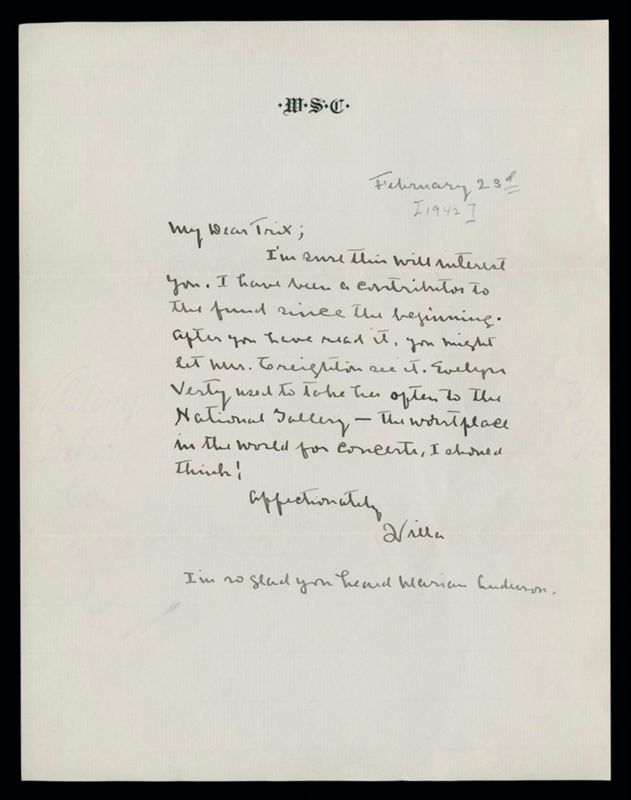 ·W·S·C·
February 23d
[1942]
My Dear Trix;
I'm sure this will interest
you. I have been a contributor to
the fund since the beginning.
After you have read it, you might
let Mrs. Creighton see it. Evelyn
Verty used to take her often to the
National Gallery — the worst place
in the world for concerts, I should
think!
Affectionately
Willa
I'm so glad you heard Marian Anderson.
Whiting
Paper
Co